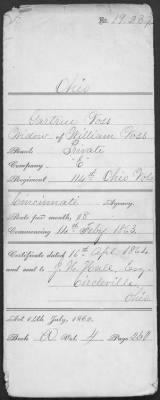 No. 19.282
Ohio
Gartrue Voss
Widow of William Voss
Rank Private
Company "E"
Regiment 114th Ohio Vols
Cincinnati Agency.
Rate per month, $8
Commencing 14th Feby 1863
Certificate dated 16th Apl 1864
and sent to J. W. Hall, Esq
Circleville,
Ohio.
Act 14th July, 1862.
Book Vol. 4 Page 260